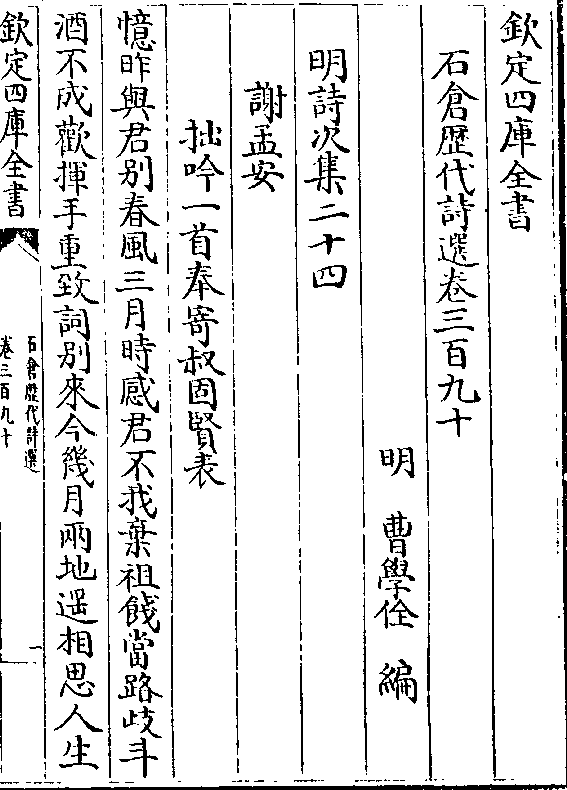 欽定四庫全書
石倉歴代詩選卷三百九十
明　曹學佺　編
明詩次集二十四
謝孟安
拙吟一首奉寄叔固賢表
憶昨與君别春風三月時感君不我棄祖餞當路歧斗
酒不成歡揮手重致詞别來今幾月兩地遥相思人生
欽定四庫全書
石倉歴代詩選
卷三百九十
一